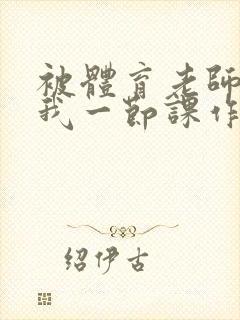 被體育老師
我一節課作
紹伊古